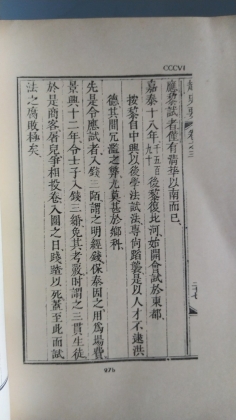 CCCVI
應黎試者僅有菁華以南而已
嘉泰十八年 千五百九十 後黎復北河始開會試於東都
按黎自中興以後學法試法專向蹈襲是以人才不逮洪
德其間冗濫之弊尤莫甚於鄉科
先是令應試者入錢三陌謂之明經錢保泰因之用爲場費
景興十二年令士子入錢三緡免其考覈時謂之三貫生徒
於是商客屠兒爭相投卷入圍之日踐蹟以死蓋至此而試
法之腐敗極矣